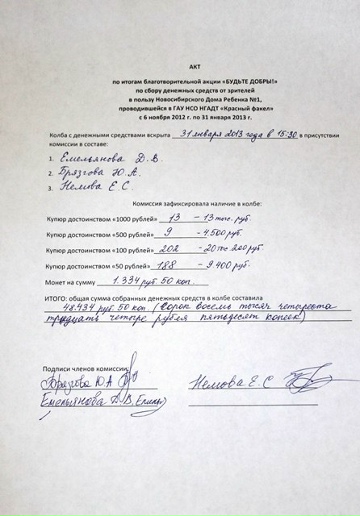 АКТ
по итогам благотворительной акции «БУДЬТЕ ДОБРЫ!»
по сбору денежных средств от зрителей
в пользу Новосибирского Дома Ребенка №1,
проводившейся в ГАУ НСО НГАДТ «Красный факел»
с 6 ноября 2012 г. по 31 января 2013 г.
Колба с денежными средствами вскрыта 31 января 2013 года в 15:30 в присутствии
комиссии в составе:
1. Емельянова Д.В.
2. Брязгова Ю.А.
3. Немова Е С.
Комиссия зафиксировала наличие в колбе:
Купюр достоинством «1000 рублей» 13 – 13 тыс. руб.
Купюр достоинством «500 рублей» 9 – 4.500 руб.
Купюр достоинством «100 рублей» 202 – 20 тыс 200 руб.
Купюр достоинством «50 рублей» 188 – 9.400 руб.
Монет на сумму 1.334 руб. 50 коп.
ИТОГО: общая сумма собранных денежных средств в колбе составила
48.434 руб. 50 коп (Сорок восемь тысяч четыреста
тридцать четыре рубля пятьдесят копеек)
Подписи членов комиссии
Брязгова Ю.А Немова Е.С
Емельянова Д.В.